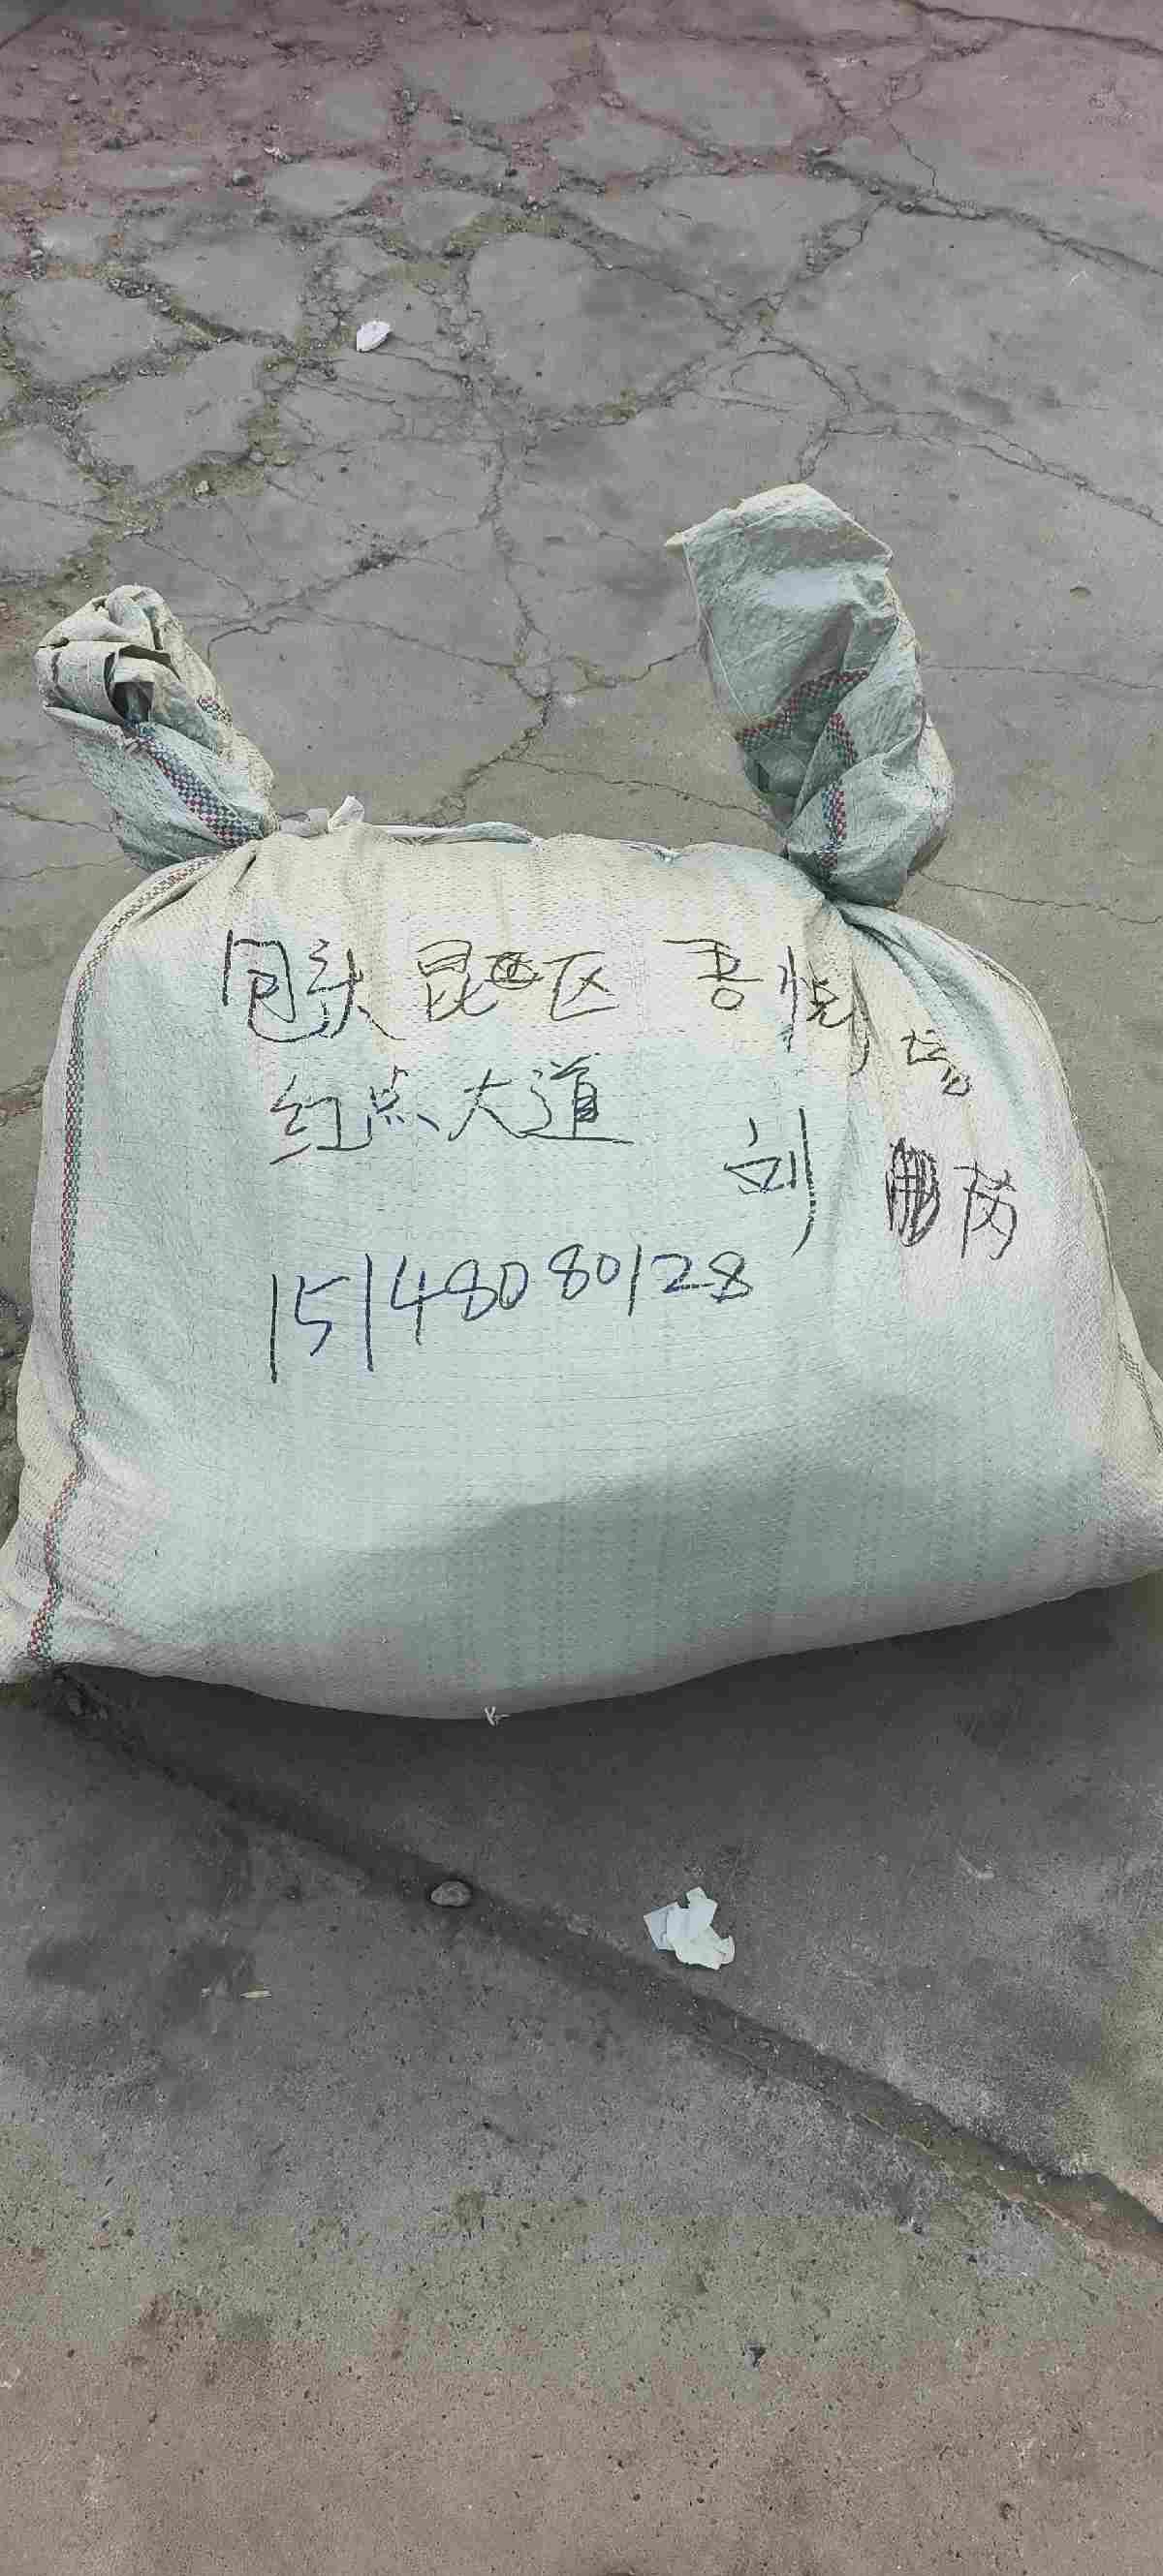 包头 昆区 吾悦广场
红点大道
刘 芮
15148080128